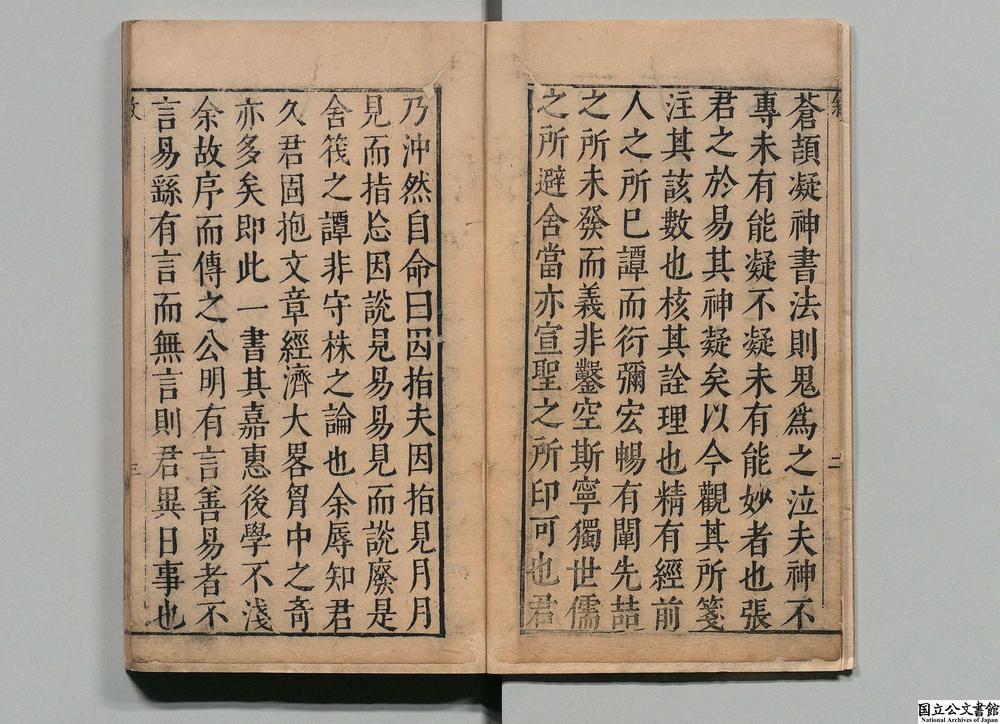 蒼頡凝神書法則鬼為之泣夫神不
專未有能凝不凝未有能妙者也張
君之於易其神凝矣以今觀其所箋
注其該數也核其詮理也精有經前
人之所已譚而衍彌宏暢有闡先喆
之所未發而義非鑿空斯寧獨世儒
之所避舍當亦宣聖之所印可也君
二
乃沖然自命曰因指夫因指見月月
見而指忘因說見易易見而說廢是
舍筏之譚非守株之論也余辱知君
久君固抱文章經濟大畧胷中之奇
亦多矣即此一書其嘉惠後學不淺
余故序而傳之公明有言善易者不
言易繇有言而無言則君異日事也
三
国立公文書館
National Archives of Japan